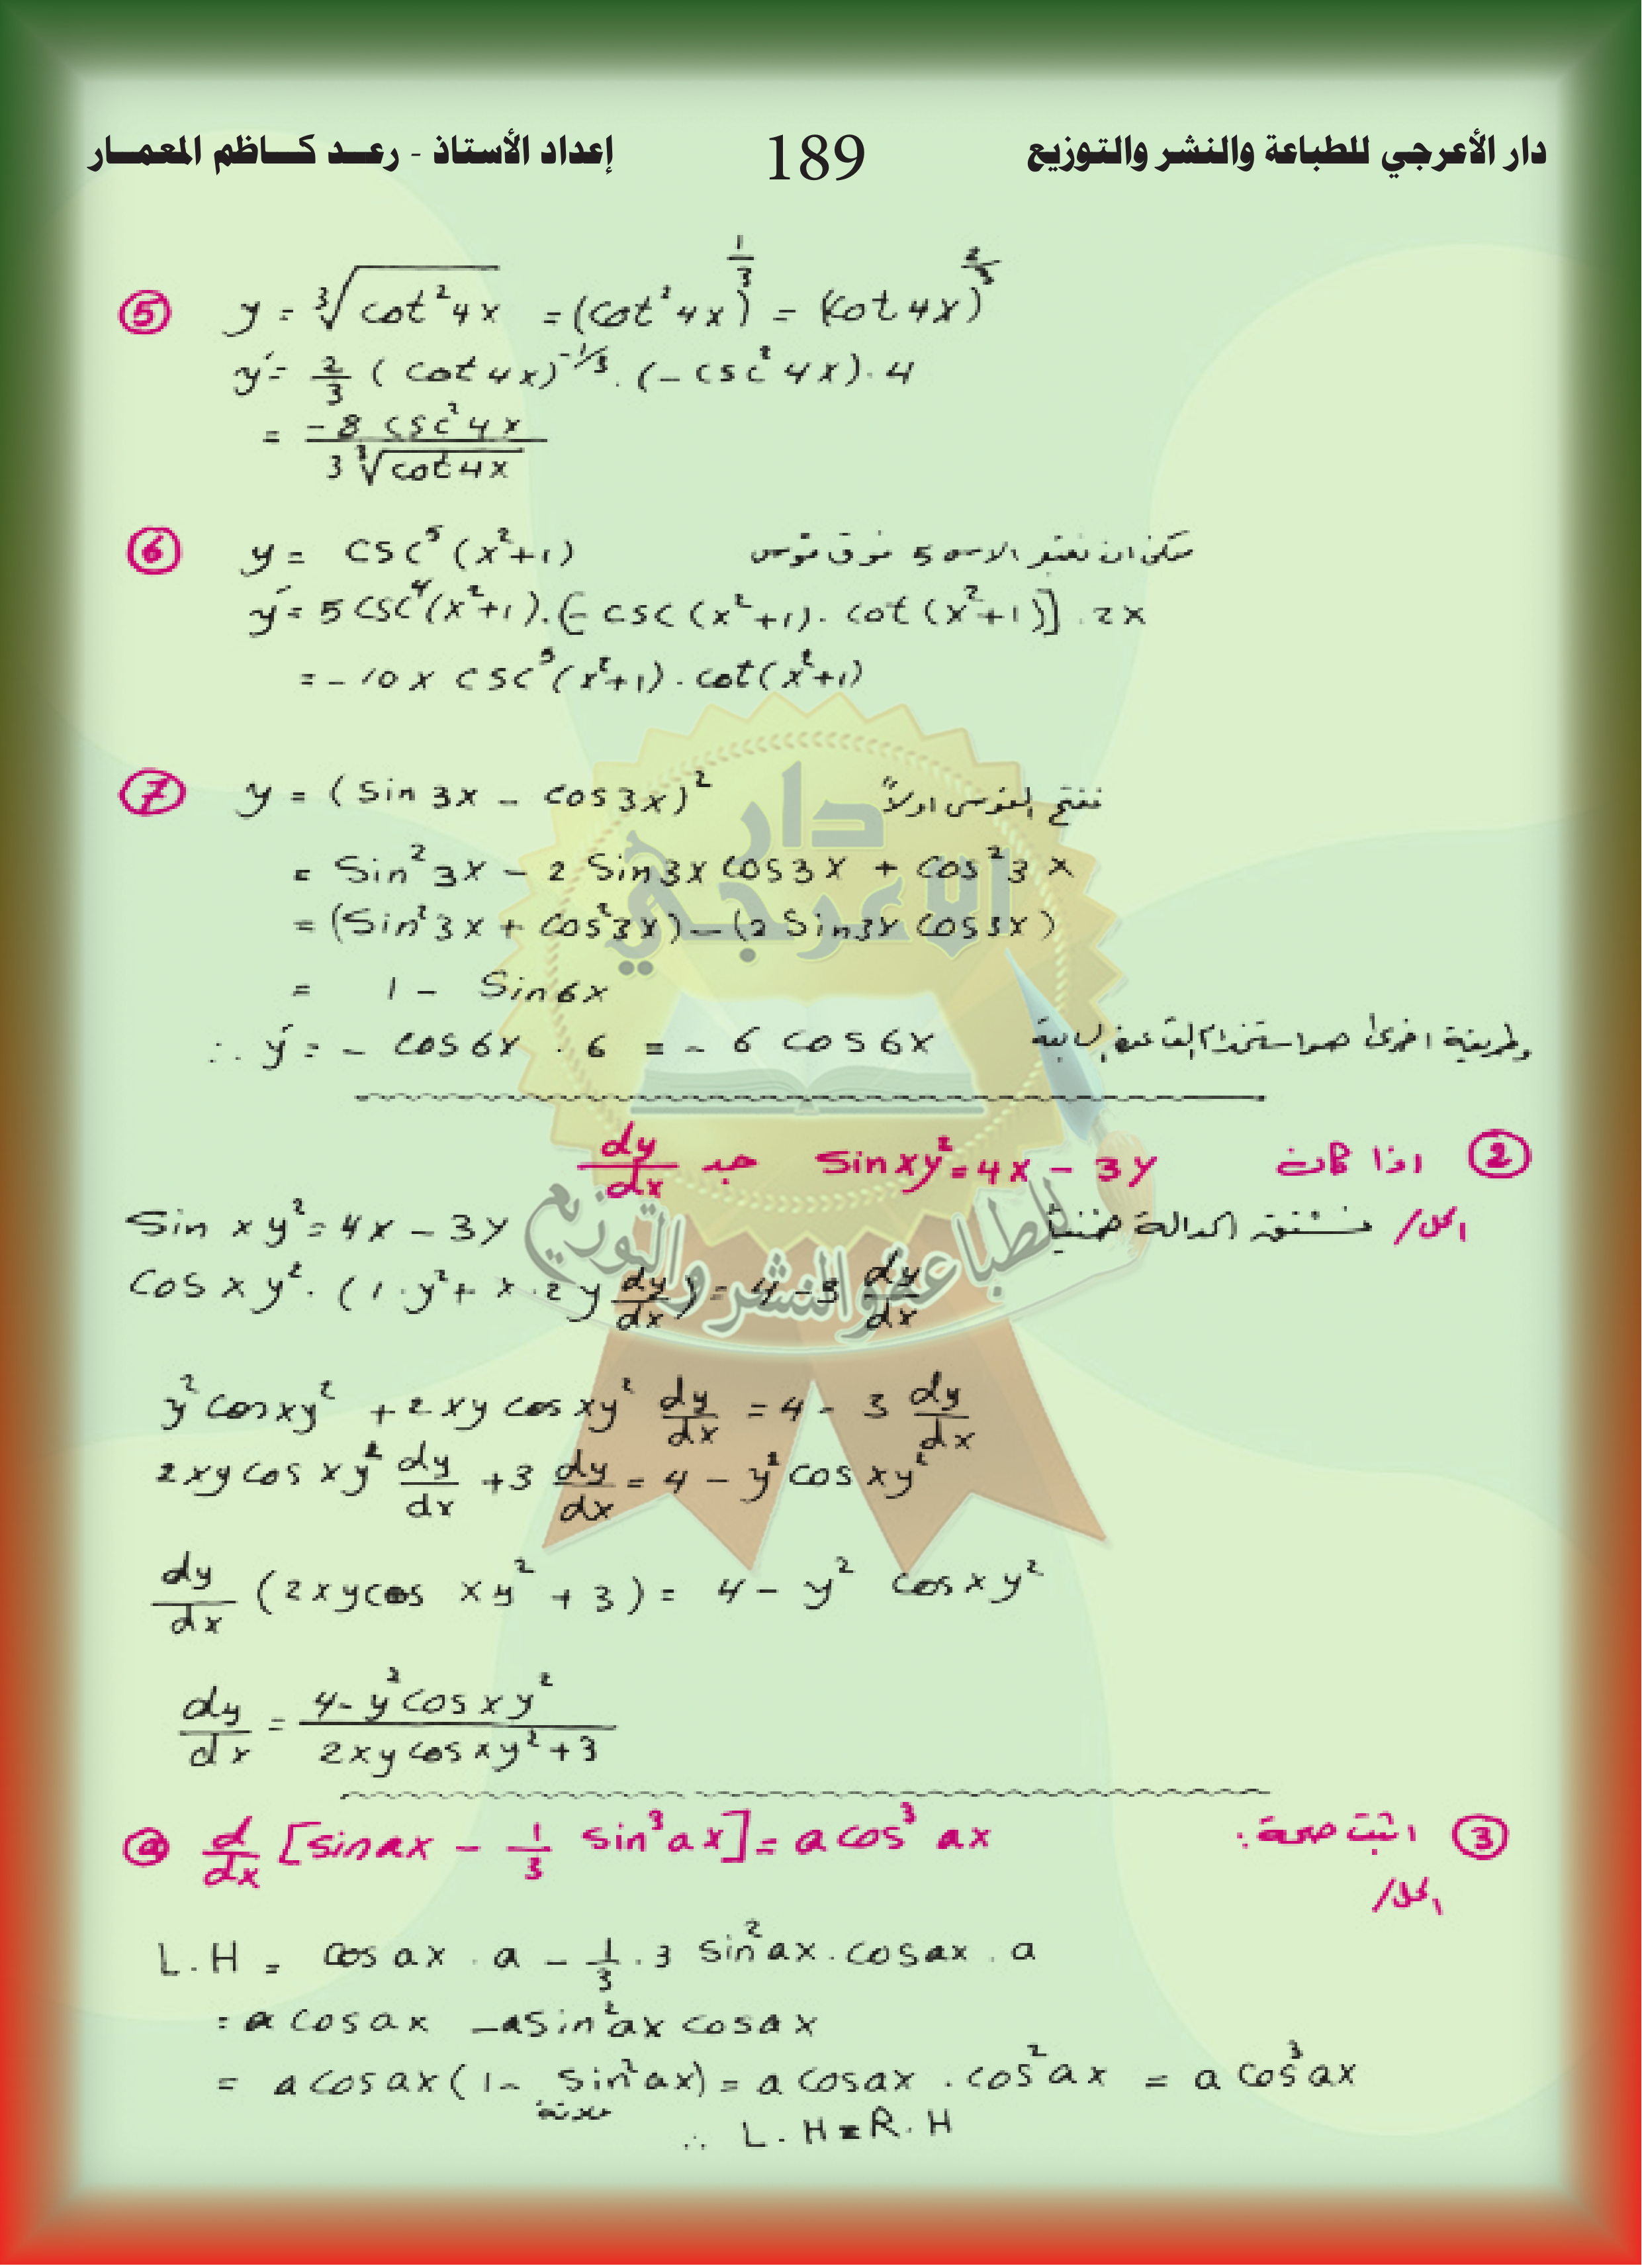 دار الأعرجي للطباعة والنشر والتوزيع 189 إعداد الأستاذ - رعد كاظم المعمار
⑤ y = ∛cot²4x = (cot²4x)^1/3 = (cot 4x)^2/3
y′ = 2/3 (cot 4x)^-1/3 . (-csc²4x) . 4
= -8 csc²4x / 3∛cot4x
⑥ y = csc⁵(x²+1) ممكن ان نعتبر الاس 5 فوق قوس
y′ = 5 csc⁴(x²+1).[-csc(x²+1). cot(x²+1)] . 2x
= -10x csc⁵(x²+1) . cot(x²+1)
⑦ y = (sin 3x - cos 3x)² نفتح القوس اولاً
= sin²3x - 2 sin3x cos3x + cos²3x
= (sin²3x + cos²3x) - (2 sin3x cos3x)
= 1 - sin6x
∴ y′ = - cos6x . 6 = - 6 cos6x وطريقة اخرى هو استخدام القاعدة السابقة
② اذا كان sin xy² = 4x - 3y جد dy/dx
الحل/ نشتق الدالة ضمنياً
sin xy² = 4x - 3y
cos xy² . (1.y² + x.2y dy/dx) = 4 - 3 dy/dx
y² cos xy² + 2xy cos xy² dy/dx = 4 - 3 dy/dx
2xy cos xy² dy/dx + 3 dy/dx = 4 - y² cos xy²
dy/dx (2xy cos xy² + 3) = 4 - y² cos xy²
dy/dx = 4 - y² cos xy² / 2xy cos xy² + 3
③ اثبت صحة :
ⓐ d/dx [sin ax - 1/3 sin³ax] = a cos³ ax
الحل/
L.H = cos ax . a - 1/3 . 3 sin²ax . cos ax . a
= a cos ax - a sin²ax cos ax
= a cos ax (1 - sin²ax) = a cos ax . cos²ax = a cos³ax
∴ L.H = R.H
دار
الاعرجي
للطباعة والنشر والتوزيع